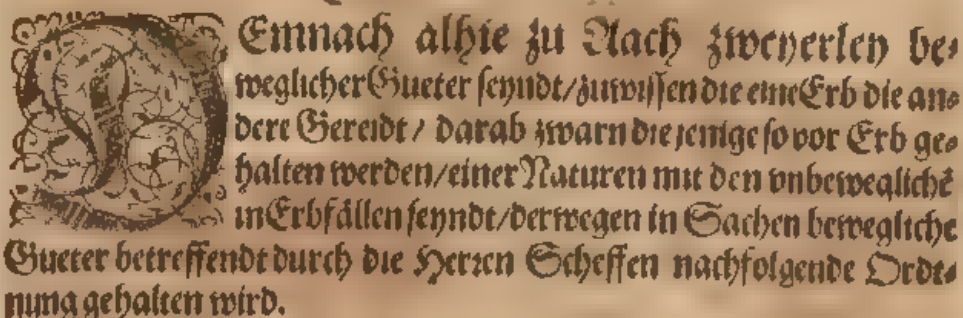 DEmnach alhie zu Aach zweyerley be⸗
weglicher Gueter seyndt/zuwissen die eine Erb die an⸗
dere Gereidt/ darab zwarn die jenige so vor Erb ge⸗
halten werden/einer Naturen mit den vnbewegliché
in Erbfällen seyndt/derwegen in Sachen bewegliche
Gueter betreffendt durch die Herren Scheffen nachfolgende Orde⸗
nung gehalten wird.